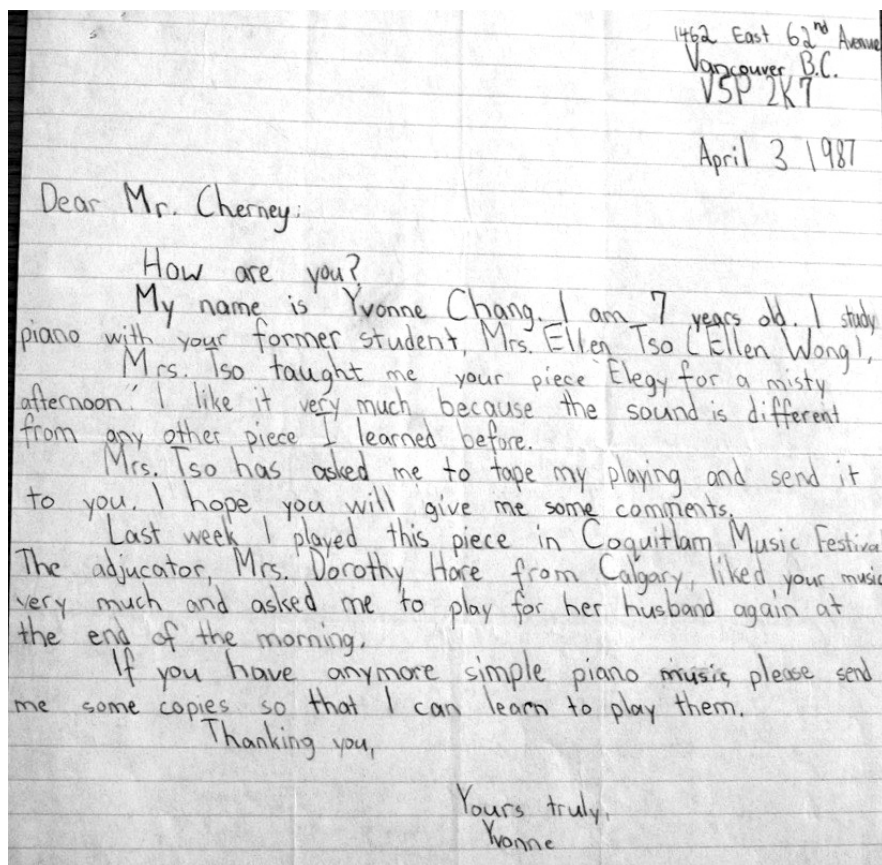 1462 East 62nd Avenue
Vancouver B.C.
V5P 2K7
April 3 1987
Dear Mr. Cherney:
How are you?
My name is Yvonne Chang. I am 7 years old. I study
piano with your former student, Mrs. Ellen Tso (Ellen Wong).
Mrs. Tso taught me your piece "Elegy for a misty
afternoon." I like it very much because the sound is different
from any other piece I learned before.
Mrs. Tso has asked me to tape my playing and send it
to you. I hope you will give me some comments.
Last week I played this piece in Coquitlam Music Festival
The adjucator, Mrs. Dorothy Hare from Calgary, liked your music
very much and asked me to play for her husband again at
the end of the morning.
If you have anymore simple piano music, please send
me some copies so that I can learn to play them.
Thanking you,
Yours truly,
Yvonne